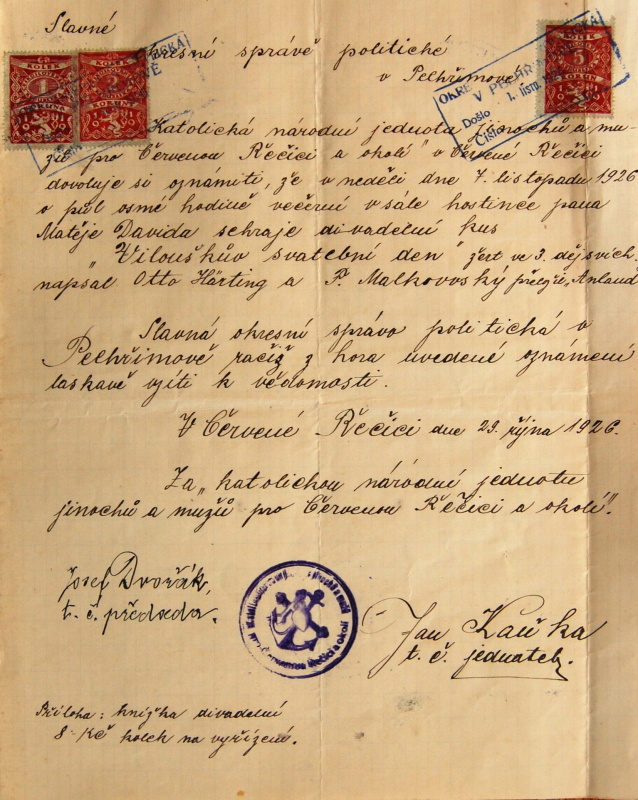 Slavné
okresní správě politické
v Pelhřimově
KOLEK
1
KORUNY
KOLEK
KOLEK
5
KORUN
V PELHŘIMOVĚ
Došlo 1. list.
Číslo
"Katolická národní jednota jinochů a mu-
žů pro Červenou Řečici a okolí" v Červené Řečici
dovoluje si oznámiti, že v neděli dne 7. listopadu 1926
o půl osmé hodině večerní v sále hostince pana
Matěje Davida sehraje divadelní kus
"Viloušků​v svatební den" žert ve 3. dějstvích.
napsal Otto Härting a F. Malkovský přelož.
Slavná okresní správo politická v
Pelhřimově račiž z hora uvedené oznámení
laskavě vzíti k vědomosti.
V Červené Řečici dne 29. října 1926.
Za "katolickou národní jednotu
jinochů a mužů pro Červenou Řečici a okolí".
Josef Dvořák,
t. č. předseda.
pro Červenou Řečici a okolí
Jan
t. č. jednatel.
Příloha: knížka divadelní
8- Kč kolek na vyřízení.